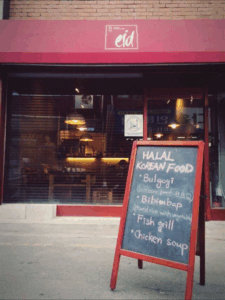 eid
HALAL
KOREAN FOOD
• Bulgogi
• Bibimbap
• Fish grill
• Chicken soup